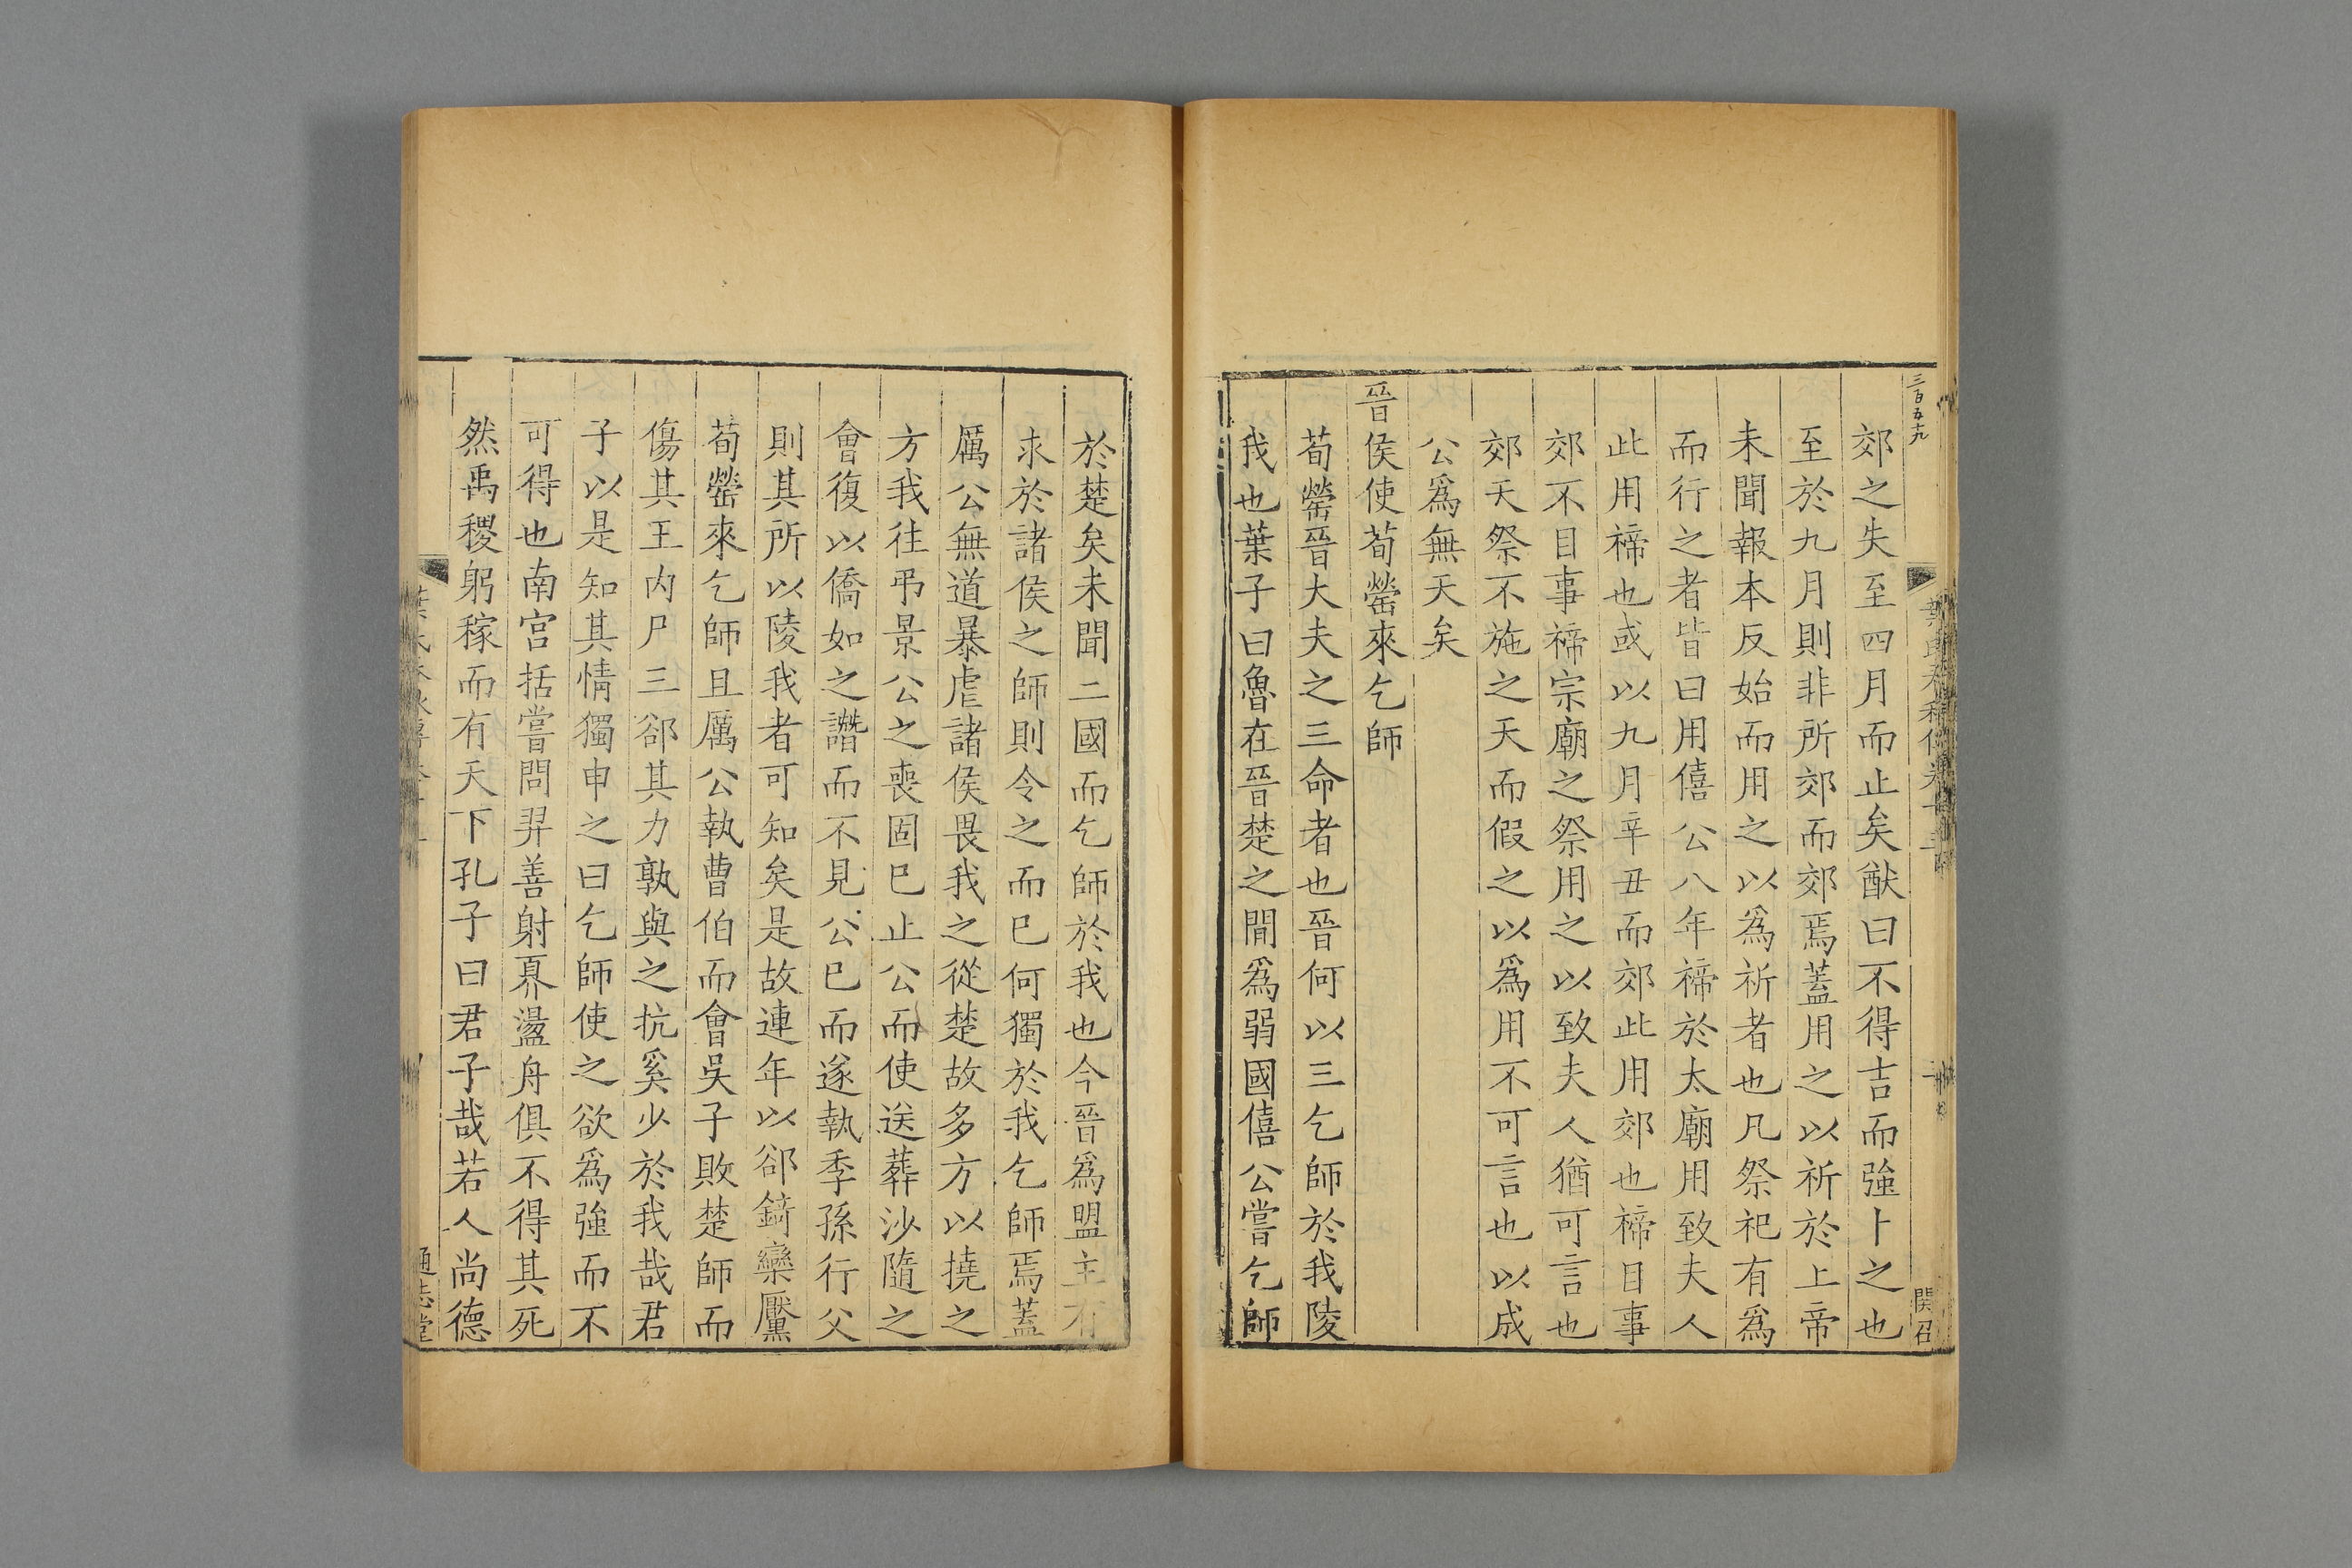 三百五十九
郊之失至四月而止矣猷曰不得吉而強卜之也
至於九月則非所郊而郊焉蓋用之以祈於上帝
未聞報本反始而用之以爲祈者也凡祭祀有爲
而行之者皆曰用僖公八年禘於太廟用致夫人
此用禘也或以九月辛丑而郊此用郊也禘日事
郊不目事禘宗廟之祭用之以致夫人猶可言也
郊天祭不施之天而假之以爲用不可言也以成
公爲無天矣
晉侯使荀罃來乞師
荀罃晉大夫之三命者也晉何以三乞師於我陵
我也葉子曰魯在晉楚之間爲弱國僖公嘗乞師
於楚矣未聞二國而乞師於我也今晉爲盟主有
求於諸侯之師則令之而巳何獨於我乞師焉蓋
厲公無道暴虐諸侯畏我之從楚故多方以撓之
方我往弔景公之喪固巳止公而使送葬沙隨之
會復以僑如之譖而不見公巳而遂執季孫行父
則其所以陵我者可知矣是故連年以郤錡欒黶
荀罃來乞師且厲公執曹伯而會吳子敗楚師而
傷其王内尸三郤其力孰與之抗奚少於我哉君
子以是知其情獨申之曰乞師使之欲爲強而不
可得也南宮括嘗問羿善射奡盪舟俱不得其死
然禹稷躬稼而有天下孔子曰君子哉若人尚德
通志堂